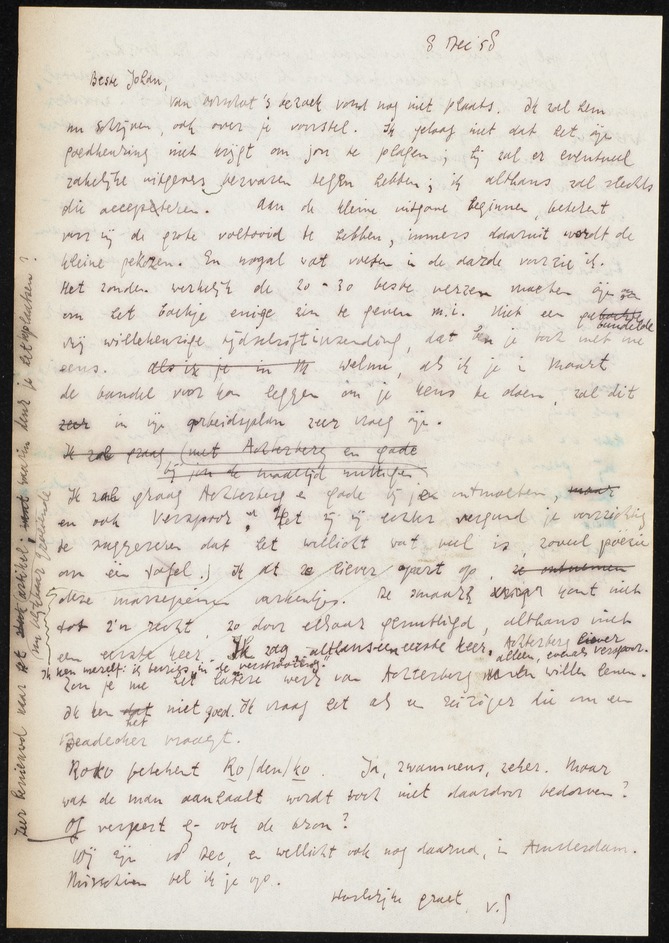 8 Dec '58
Beste Johan,
Van Oorschot's bezoek vond nog niet plaats. Ik zal hem
nu schrijven, ook over je voorstel. Ik geloof niet dat het zijn
goedkeuring niet krijgt om jou te plagen; hij zal er eventueel
zakelijke uitgevers bezwaren tegen hebben; ik althans zal slechts
die accepteren. Aan de kleine uitgave beginnen, betekent
voor mij de grote voltooid te hebben, immers daaruit wordt de
kleine gekozen. En nogal wat voeten in de aarde voorzie ik.
Het zouden werkelijk de 20-30 beste verzen moeten zijn
om het boekje enige zin te geven m.i. Niet een gebundelde
vrij willekeurige tijdschriftinzending, dat ben je toch met me
eens. als ik je in M Welnu, als ik je in Maart
de bundel voor kan leggen om je keus te doen, zal dit
zeer in mijn arbeidsplan zeer vroeg zijn.
Ik zal graag (met Achterberg en gade
bij jou de maaltijd nuttigen
Ik zal graag Achterberg en gade bij je ontmoeten, maar
en ook Verspoor. Het zij mij echter vergund je voorzichtig
te suggereren dat het wellicht wat veel is, zoveel poëzie
om één tafel.) Ik at ze liever apart op,
deze marsepeinen varkentjes. De smaak komt niet
tot z'n recht, zo door elkaar genuttigd, althans niet
een eerste keer. Ik zag althans een eerste keer Achterberg liever
alleen, evenals Verspoor.
Ik ken mezelf: ik bezwijk in de "verstrooiing"
Zou je me het latere werk van Achterberg willen lenen.
Ik ken dat het niet goed. Ik vraag het als een reiziger die om een
Beadecker vraagt.
Roko betekent Ro/den/ko. Ja, zwammens, zeker. Maar
wat de man aanhaalt wordt toch niet daardoor bedorven?
Of verpest hij ook de bron?
Wij zijn 10 Dec, en wellicht ook nog daarna, in Amsterdam.
Misschien bel ik je op.
Hartelijke groet, v.S
Zeer benieuwd naar artikel; waarin denk je het te plaatsen?